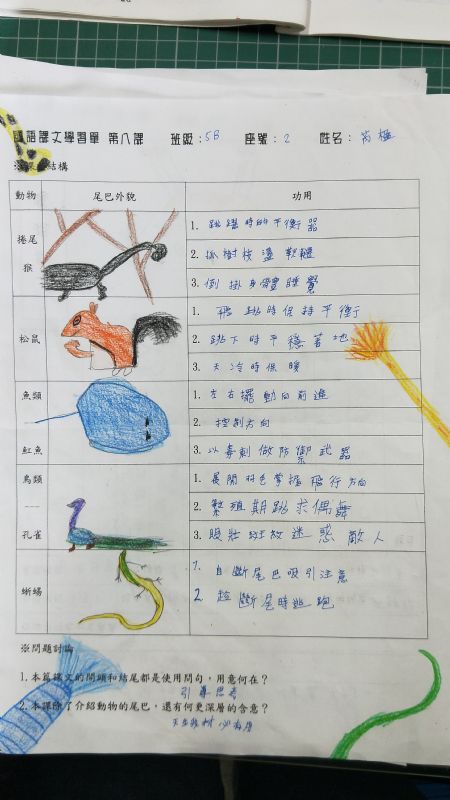 國語課文學習單 第八課 班級:5B 座號:2 姓名:芮極
結構
動物 尾巴外貌 功用
捲尾猴
1. 跳躍時的平衡器
2. 抓樹枝盪鞦韆
3. 倒掛身體睡覺
松鼠
1. 飛跳時保持平衡
2. 跳下時平穩著地
3. 天冷時保暖
魚類
魟魚
1. 左右擺動向前進
2. 控制方向
3. 以毒刺做防禦武器
鳥類
孔雀
1. 展開羽毛掌握飛行方向
2. 繁殖期跳求偶舞
3. 眼狀斑紋迷惑敵人
蜥蜴
1. 自斷尾巴吸引注意
2. 趁斷尾時逃跑
※問題討論
1.本篇課文的開頭和結尾都是使用問句,用意何在?
引導思考
2.本課除了介紹動物的尾巴,還有何更深層的含意?
天生我材必有用